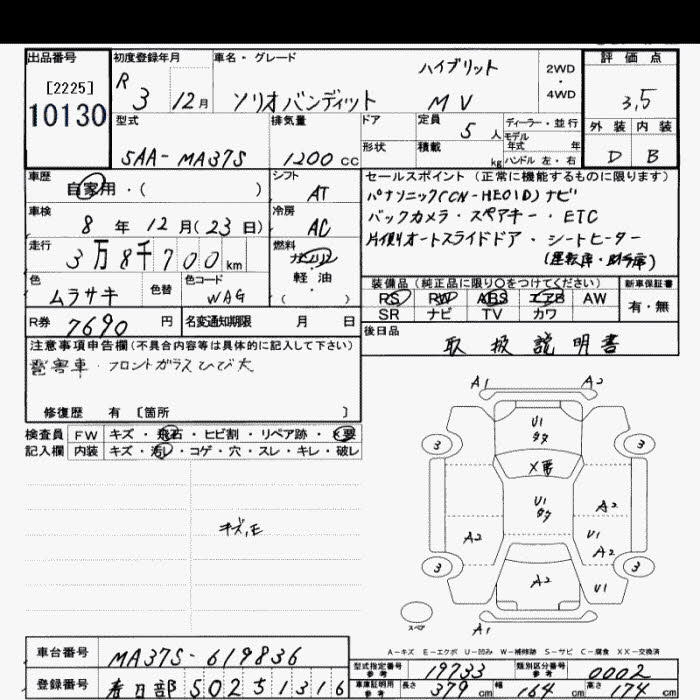 出品番号 初度登録年月 車名・グレード ハイブリット 2WD・4WD 評価点
[2225]
10130
R 3 12月 ソリオバンディット MV 3.5
型式 排気量 ドア 定員 5人 ディーラー・並行 外装 内装
モデル年式 年
5AA-MA37S 1200cc 形状 積載 kg ハンドル 左・右 D B
車歴 自家用・( ) シフト AT
車検 8年12月(23日) 冷房 AC
走行 3万8千700km 燃料 ガソリン・軽油( )
色 ムラサキ 色替 色コード WAG
R券 7690円 名変通知期限 月 日
セールスポイント (正常に機能するものに限ります)
パナソニック(CN-HE01D)ナビ
バックカメラ・スペアキー・ETC
片側オートスライドドア・シートヒーター
(運転席・助手席)
装備品 (純正品に限り〇をつけてください) 新車保証書
PS PW ABS エアB AW 有・無
SR ナビ TV カワ
後日品
取扱説明書
注意事項申告欄(不具合内容等は具体的に記入して下さい)
雹害車・フロントガラスひび大
修復歴 有 [箇所 ]
検査員 FW キズ・飛石・ヒビ割・リペア跡・X要
記入欄 内装 キズ・汚レ・コゲ・穴・スレ・キレ・破レ
キズ,モ
A1 A2
U1
タタ
3 3
X要
U1
タタ
A2
A2 U1
A2
3 3
A2 U1
スペア A1
A-キズ E-エクボ U-凹み W-補修跡 S-サビ C-腐食 XX-交換済
車台番号 MA37S-619836
登録番号 春日部 502 5 1316
型式指定番号 参考 19733 類別区分番号 参考 0002
車庫証明用 参考 長さ 379cm 幅 164cm 高さ 174cm